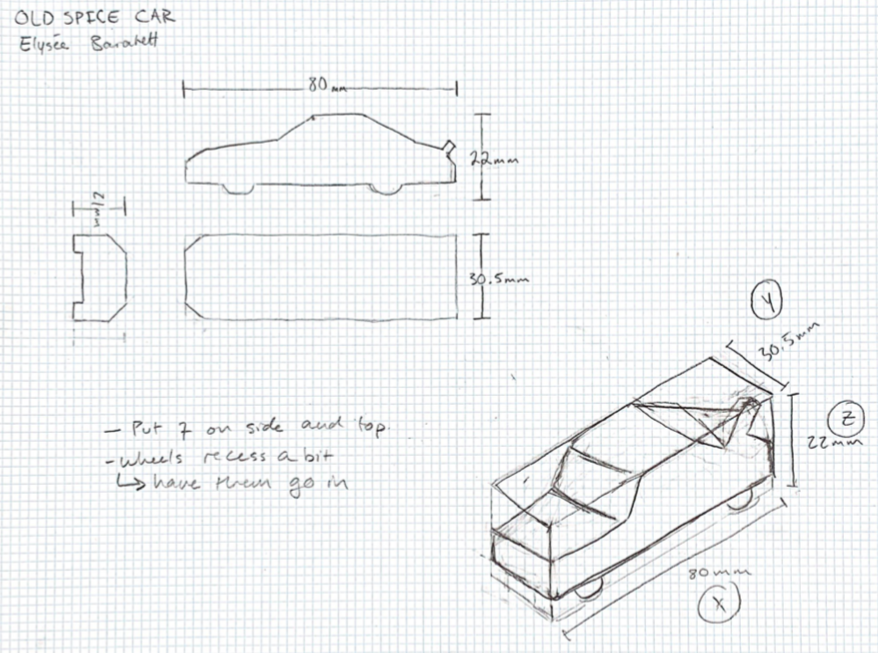 OLD SPICE CAR
Elysée
80 mm
22mm
30.5mm
- Put 7 on side and top.
- Wheels recess a bit
↳ have them go in
Y
30.5mm
Z
22mm
80mm
X